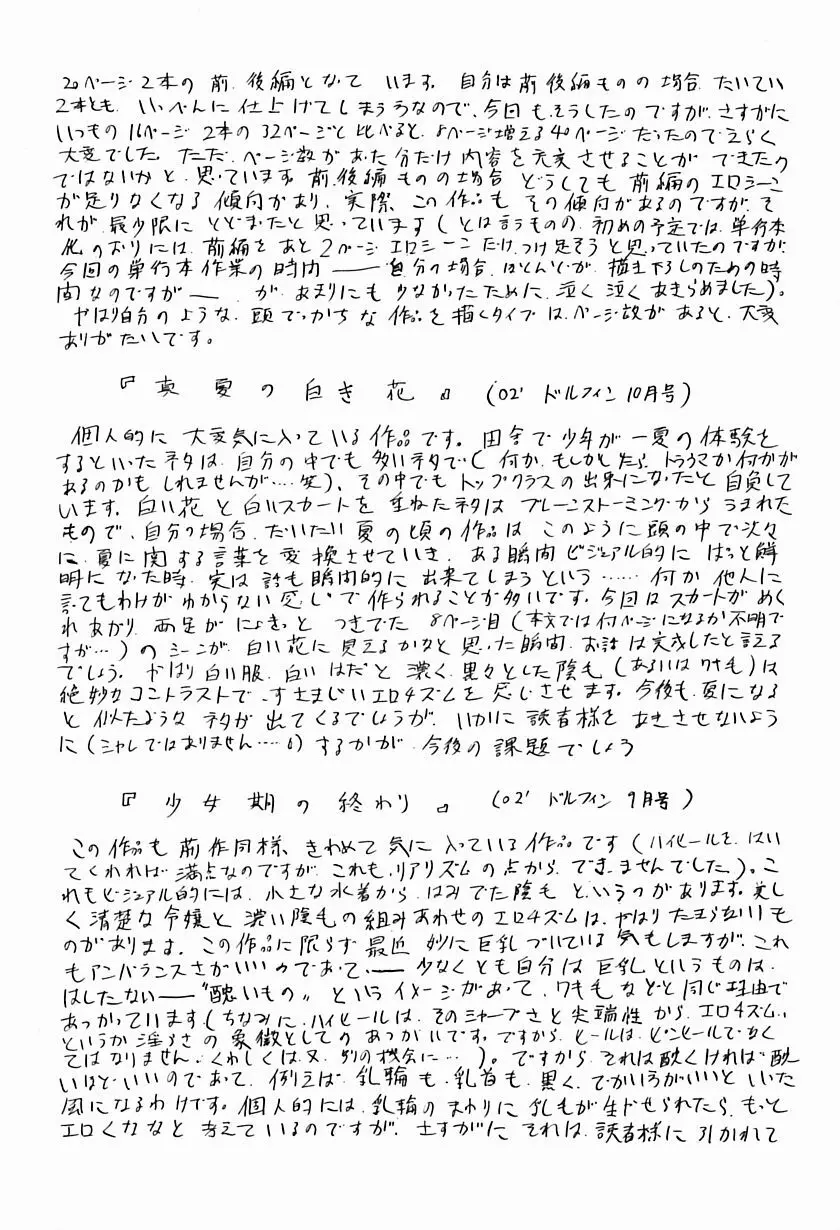 20ページ2本の前、後編となって います。自分は前後編ものの場合、たいてい
2本とも、いっぺんに仕上げてしまうるなので、今回も、そうしたのですが、さすがに
いつもの16ページ2本の32ページと比べると、8ページ増える40ページだったのでえらく
大変でした。ただ、ページ数があった分だけ内容を充実させることができたの
ではないかと、思っています。前、後編ものの場合 どうしても 前編のエロシーン
が足りなくなる傾向があり、実際、この作品も その傾向があるのですが、そ
れが、最少限に とどまったと思っています(とは言うものの、初めの予定では、単行本
化のおりには、前編をあと2ページエロシーンだけ、つけ足そうと思っていたのですが、
今回の単行本作業の時間――自分の場合、ほとんどが、描き下ろしのための時
間なのですが―― が、あまりにも少なかったために、泣く泣くあきらめました)。
やはり自分のような、頭でっかちな作品を描くタイプは、ページ数があると、大変
ありがたいです。
『真夏の白き花』(02' ドルフィン10月号)
個人的に大変気に入っている作品です。田舎で少年が一夏の体験を
するといったネタは、自分の中でも多いネタで(何か、もしかしたら、トラウマか何かが
あるのかもしれませんが‥‥笑)、その中でもトップクラスの出来になったと自負して
います。白い花と白いスカートを重ねたネタはブレーンストーミングからうまれた
もので、自分の場合、だいたい夏の頃の作品はこのように頭の中で次々
に、夏に関する言葉を変換させていき、ある瞬間ビジュアル的にはっと解
明になった時、実は話も瞬間的に出来てしまうという……何か他人に
言ってもわけがわからない感じで作られることが多いです。今回はスカートがめく
れあがり、両足がにょきっとつきでた8ページ目(本文では何ページになるか不明で
すが…)のシーンが、白い花に見えるかなと思った瞬間、お話は完成したと言える
でしょう。やはり白い服、白いはだと濃く、黒々とした陰毛(あるいはワキ毛)は
絶妙なコントラストで、すさまじいエロチズムを感じさせます。今後も、夏になる
と似たようなネタが出てくるでしょうが、いかに読者様をあきさせないよう
に(シャレではありません‥‥)するかが、今後の課題でしょう
『少女期の終わり』(02' ドルフィン9月号)
この作品も前作同様、きわめて気に入っている作品です(ハイヒールを、はい
てくれれば満点なのですが、これも、リアリズムの点から、できませんでした)。こ
れもビジュアル的には、小さな水着から、はみでた陰毛というのがあります。美し
く清楚な令嬢と濃い陰毛の組みあわせのエロチズムは、やはりたまらないも
のがあります。この作品に限らず最近 妙に巨乳づいている気もしますが、これ
もアンバランスさがいいのであって、――少なくとも自分は巨乳というものは、
はしたない――“醜いもの”というイメージがあって、ワキ毛などと同じ理由で
あつかっています(ちなみに、ハイヒールは、そのシャープさと尖端性から、エロチズム、
というか淫らさの象徴としてのあつかいです。ですから、ヒールは、ピンヒールでなく
てはなりません、くわしくは、又、別の機会に…)。ですから、それは醜くければ醜
いほどいいのであって、例えば、乳輪も、乳首も、黒く、でかいほうがいいといった
風になるわけです。個人的には、乳輪のまわりに乳毛が生やせられたら、もっと
エロくなるなと考えているのですが、さすがにそれは、読者様に引かれて